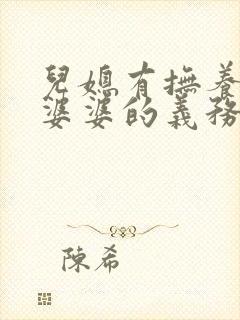 兒媳有撫養
婆婆的義務
陳希